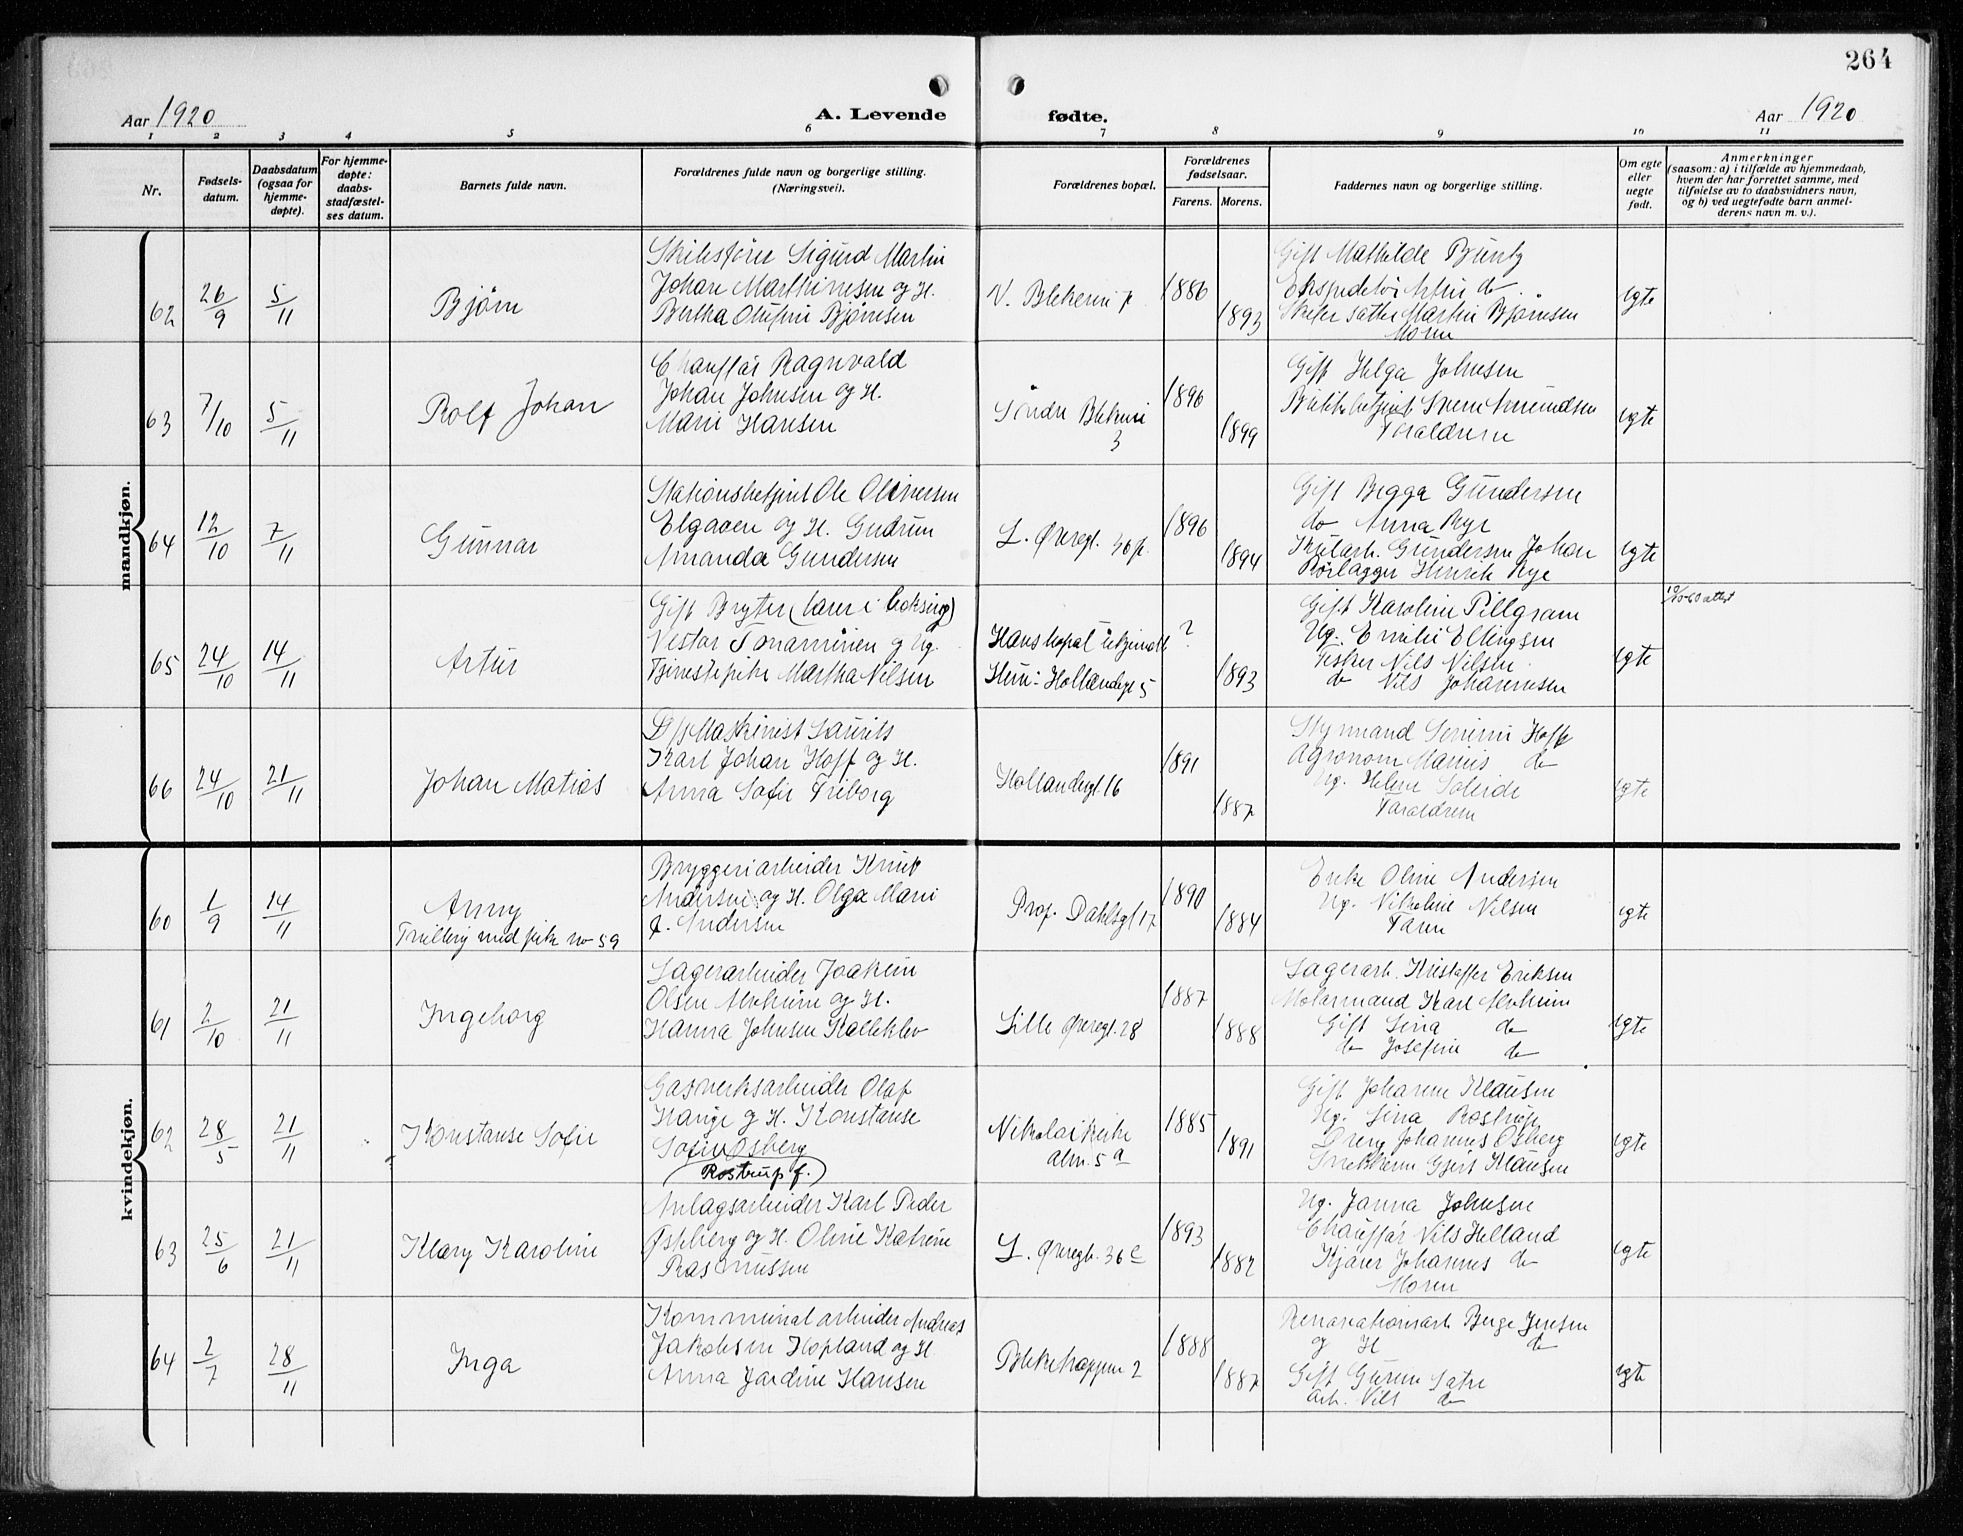 264
Aar 1920
A. Levende
fødte.
Aar 1920
1 2 3 4 5 6 7 8 9 10 11
Nr.
Fødsels-
datum.
Daabsdatum
(ogsaa for
hjemme-
døpte).
For hjemme-
døpte:
daabs-
stadfæstel-
ses datum.
Barnets fulde navn.
Forældrenes fulde navn og borgerlige stilling.
(Næringsvei).
Forældrenes bopæl.
Forældrenes
fødselsaar.
Farens. Morens.
Faddernes navn og borgerlige stilling.
Om egte
eller
uegte
født.
Anmerkninger
(saasom: a) i tilfælde av hjemmedaab,
hvem der har forrettet samme, med
tilføielse av to daabsvidners navn,
og b) ved uegtefødte barn anmel-
derens navn m. v.).
mandkjøn.
62
26/9
5/11
Bjørn
Sigurd Martin
Johan Marthinsen og H.
Bertha Olufine Bjørnsen
1886
1893
Gift Mathilde Buntz
do
Martin Bjørnsen
Moren
egte
63
7/10
5/11
Rolf Johan
Chauffør Ragnvald
Johan Johnsen og H.
Marie Hansen
Søndre Blekevei
3
1896
1899
Gift Helga Johnsen
Forældrene
egte
64
12/10
7/11
Gunnar
Stationsbetjent Ole Oliversen
Elgaaen og H. Gudrun
Amanda Gundersen
L. Øvregt. 36
1896
1894
Gift Begga Gundersen
do Anna Rye
Gundersen Johan
Rørlægger Henrik Rye
egte
65
24/10
14/11
Artur
Gift Bryter (lærer i boksing)
Vestor og Ug.
Tjenestepike Martha Nilsen
Hans bopæl ubekjendt
Hun: Hollendergt 5
?
1893
Gift Karoline Pillgram
Ug. Emilie Ellingsen
Fisker Nils Nilsen
do Nils Johannesen
egte
66
24/10
21/11
Johan Matias
D/S Maskinist Laurits
Karl Johan Hoff og H.
Anna Sofie Friborg
Hollendergt 16
1891
1887
Styrmand Severin Hoff
Agronom Marius do
Ug. Helene
Forældrene
egte
kvindekjøn.
60
1/9
14/11
Anny
Tvilling med pike no 59
Bryggeriarbeider Knut
Andersen og H. Olga Marie
f. Andersen
Prof. Dahlsgt 17
1890
1884
Enke Oline Andersen
Ug. Nikoline Nilsen
Faren
egte
61
2/10
21/11
Ingeborg
Lagerarbeider Joakim
Olsen Alvheim og H.
Hanna Johnsen Kalleklev
Lille Øvregt. 28
1887
1888
Lagerarb. Kristoffer Eriksen
Motormand Karl Alvheim
Gift Lina do
do Josefine do
egte
62
28/5
21/11
Konstanse Sofie
Gasverksarbeider Olaf
Hauge og H. Konstanse
Sofie Osberg
(Rostrup f.)
Nikolaikirke
alm. 5 a
1885
1891
Gift Johanne Klausen
Ug. Lina Rostrup
Dreng Johannes Osberg
Snekkerm Gjert Klausen
egte
63
25/6
21/11
Klary Karoline
Anlægsarbeider Karl Peder
og H. Oline Katrine
Rasmussen
L. Øvregt. 36 c
1893
1882
Ug. Janna Johnsen
Chauffør Nils Helland
Kjører Johannes do
Moren
egte
64
2/7
28/11
Inga
Kommunalarbeider Andreas
Jakobsen Hopland og H
Anna Jardine Hansen
Blekehoppen 2
1888
1887
Renovationsarb Berge Jensen
og H do
Gift Guren Sætre
arb. Nils do
egte